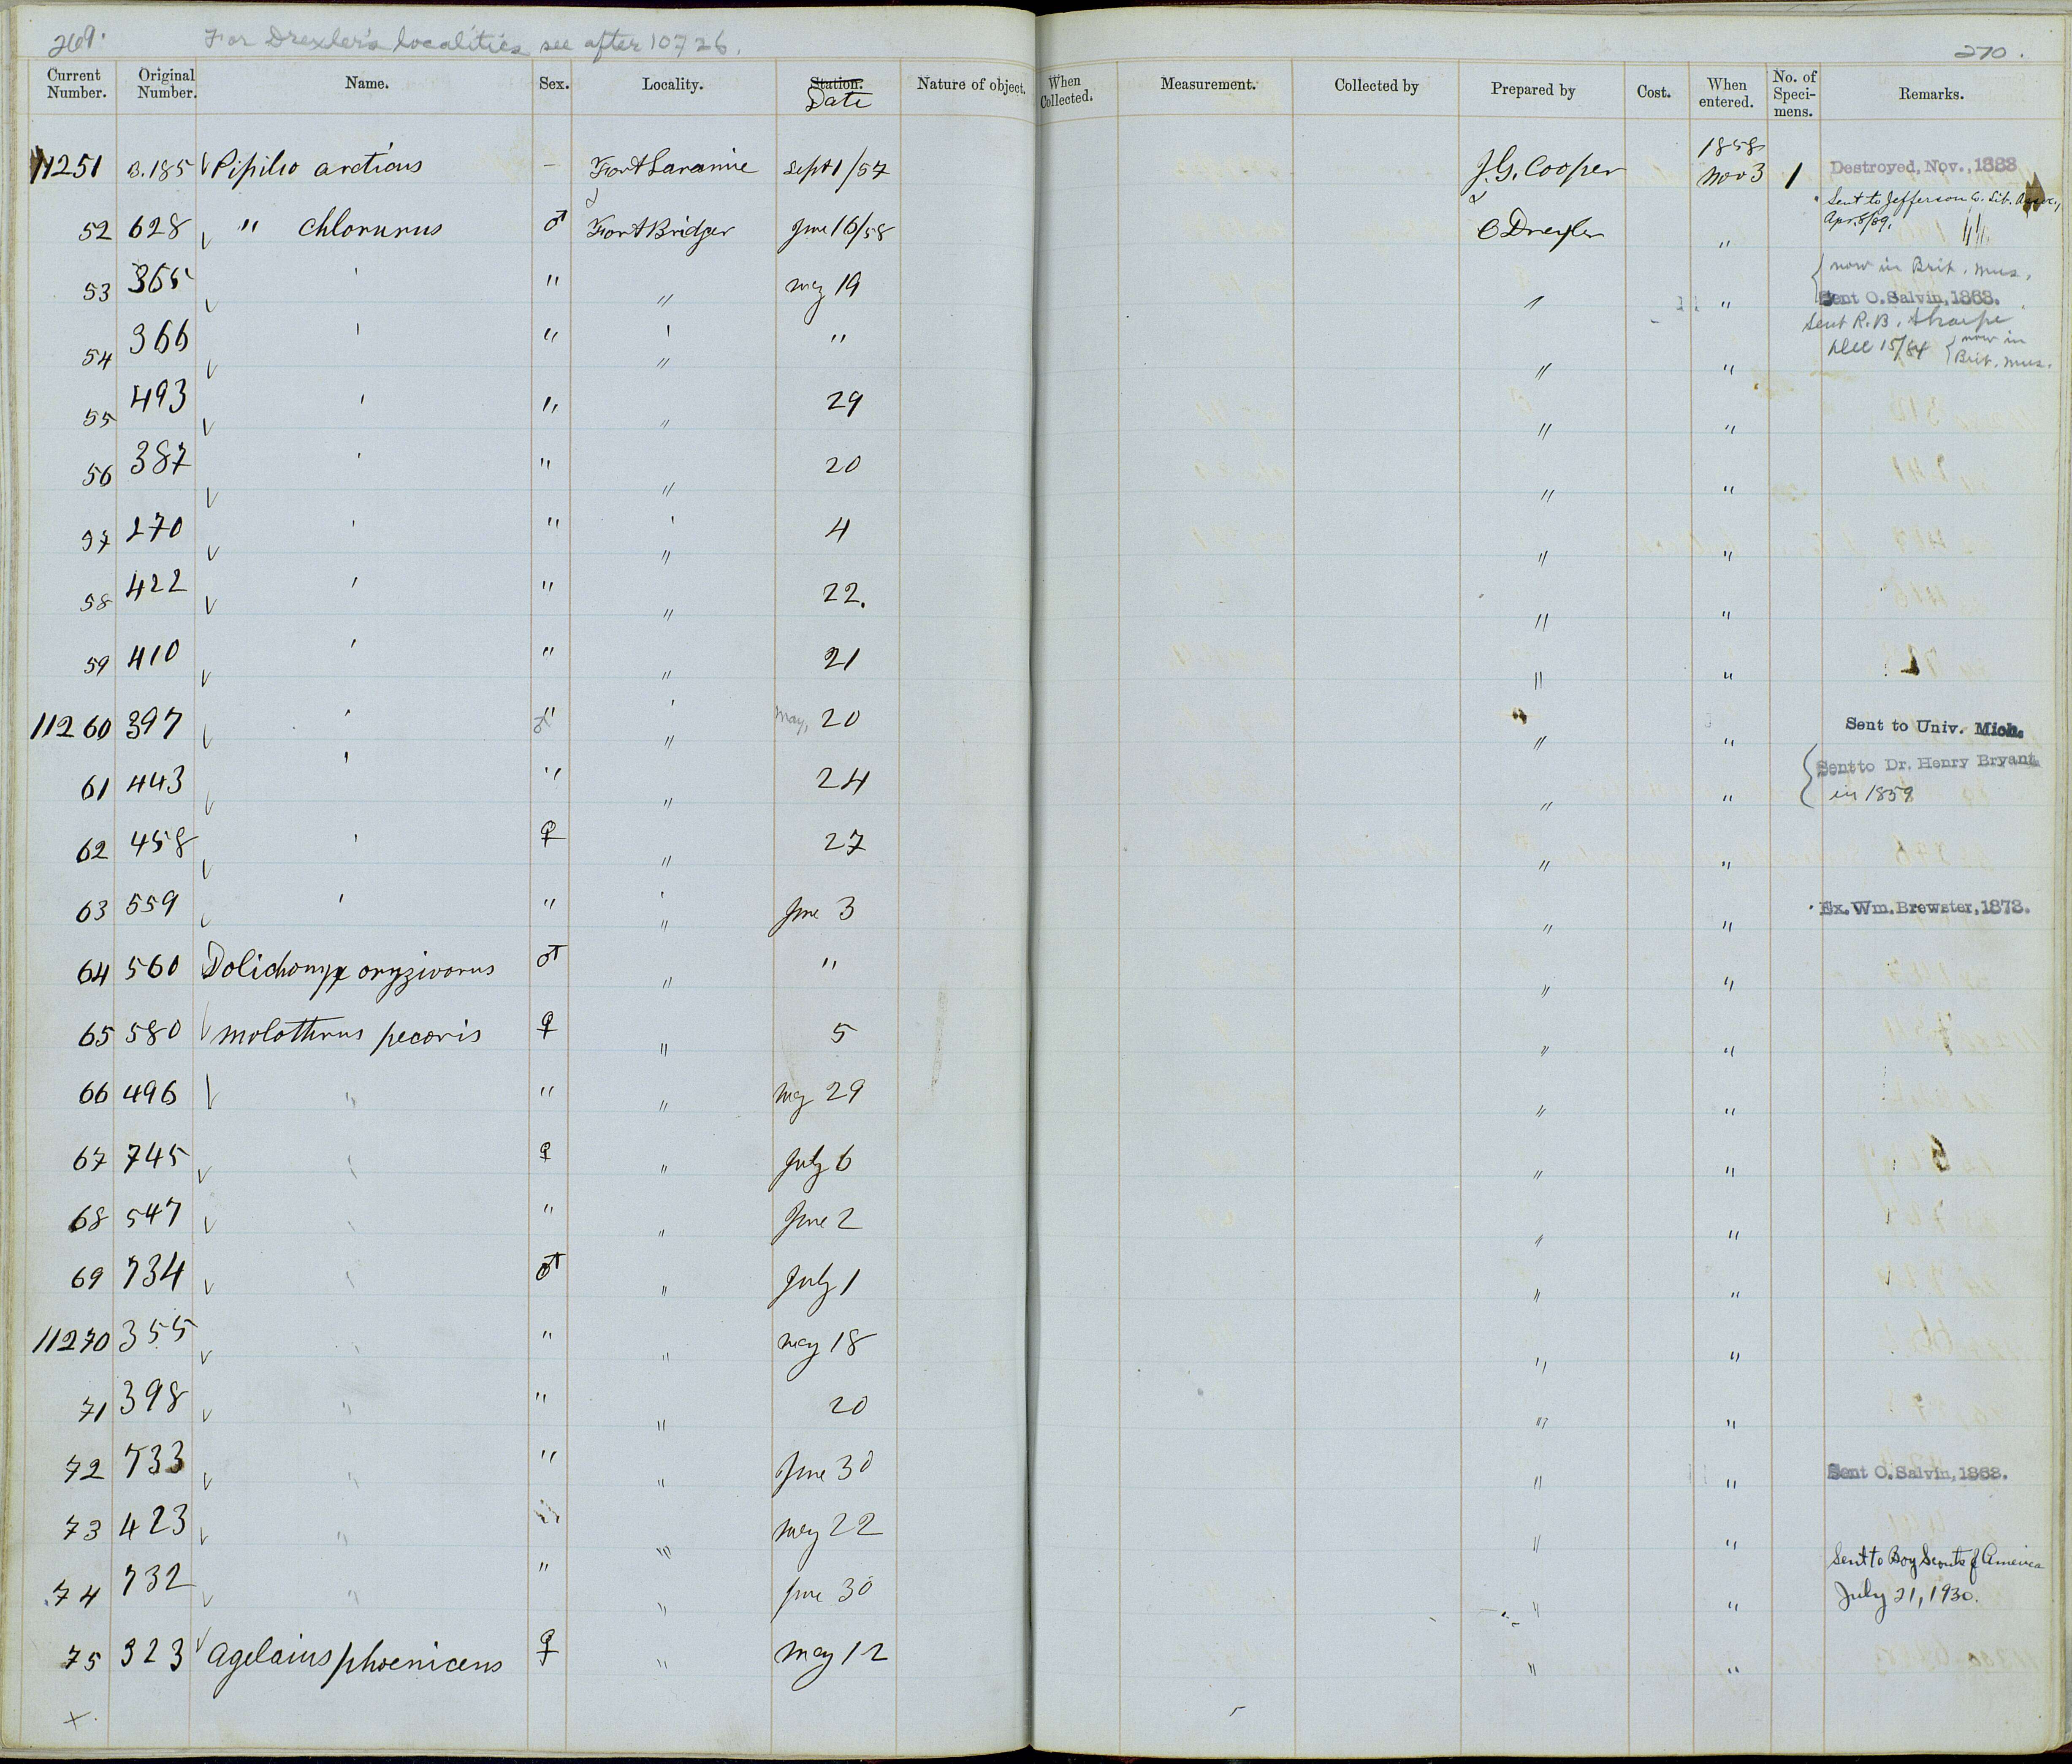 269. For Drexler's localities see after 10726. 270.
Current Number. Original Number. Name. Sex. Locality. Station. Date Nature of object. When Collected. Measurement. Collected by Prepared by Cost. When entered. No. of Specimens. Remarks.
11251 B.185 √ Pipilo arcticus – Fort Laramie Sept 1/57 J.G. Cooper 1858 Nov 3 1 Destroyed, Nov., 1883
52 628 √ " chlorurus ♂ Fort Bridger June 16/58 C Drexler " Sent to Jefferson Co. Lib. Assoc., Apr. 8/89.
53 365 √ ' " " May 19 " " { now in Brit. Mus. Sent O. Salvin, 1868.
54 366 √ ' " " " " " Sent R. B. Sharpe Dec 15/84 { now in Brit. Mus.
55 493 √ ' " " 29 " "
56 387 √ ' " " 20 " "
57 270 √ ' " " 4 " "
58 422 √ ' " " 22. " "
59 410 √ ' " " 21 " "
11260 397 √ ' ♂ " " May, 20 " " Sent to Univ. Mich.
61 443 √ ' " " 24 " " { Sent to Dr. Henry Bryant in 1859
62 458 √ ' ♀ " 27 " "
63 559 √ ' " " June 3 " " Ex. Wm. Brewster, 1873.
64 560 Dolichonyx oryzivorus ♂ " " " "
65 580 √ Molothrus pecoris ♀ " 5 " "
66 496 √ " " " May 29 " "
67 745 √ " ♀ " July 6 " "
68 547 √ " " " June 2 " "
69 734 √ " ♂ " July 1 " "
11270 355 √ " " " May 18 " "
71 398 √ " " " 20 " "
72 733 √ " " " June 30 " " Sent O. Salvin, 1868.
73 423 √ " " " May 22 " "
74 732 √ " " " June 30 " " Sent to Boy Scouts of America July 21, 1930.
75 323 √ Agelaius phoeniceus ♀ " May 12 " "
x.